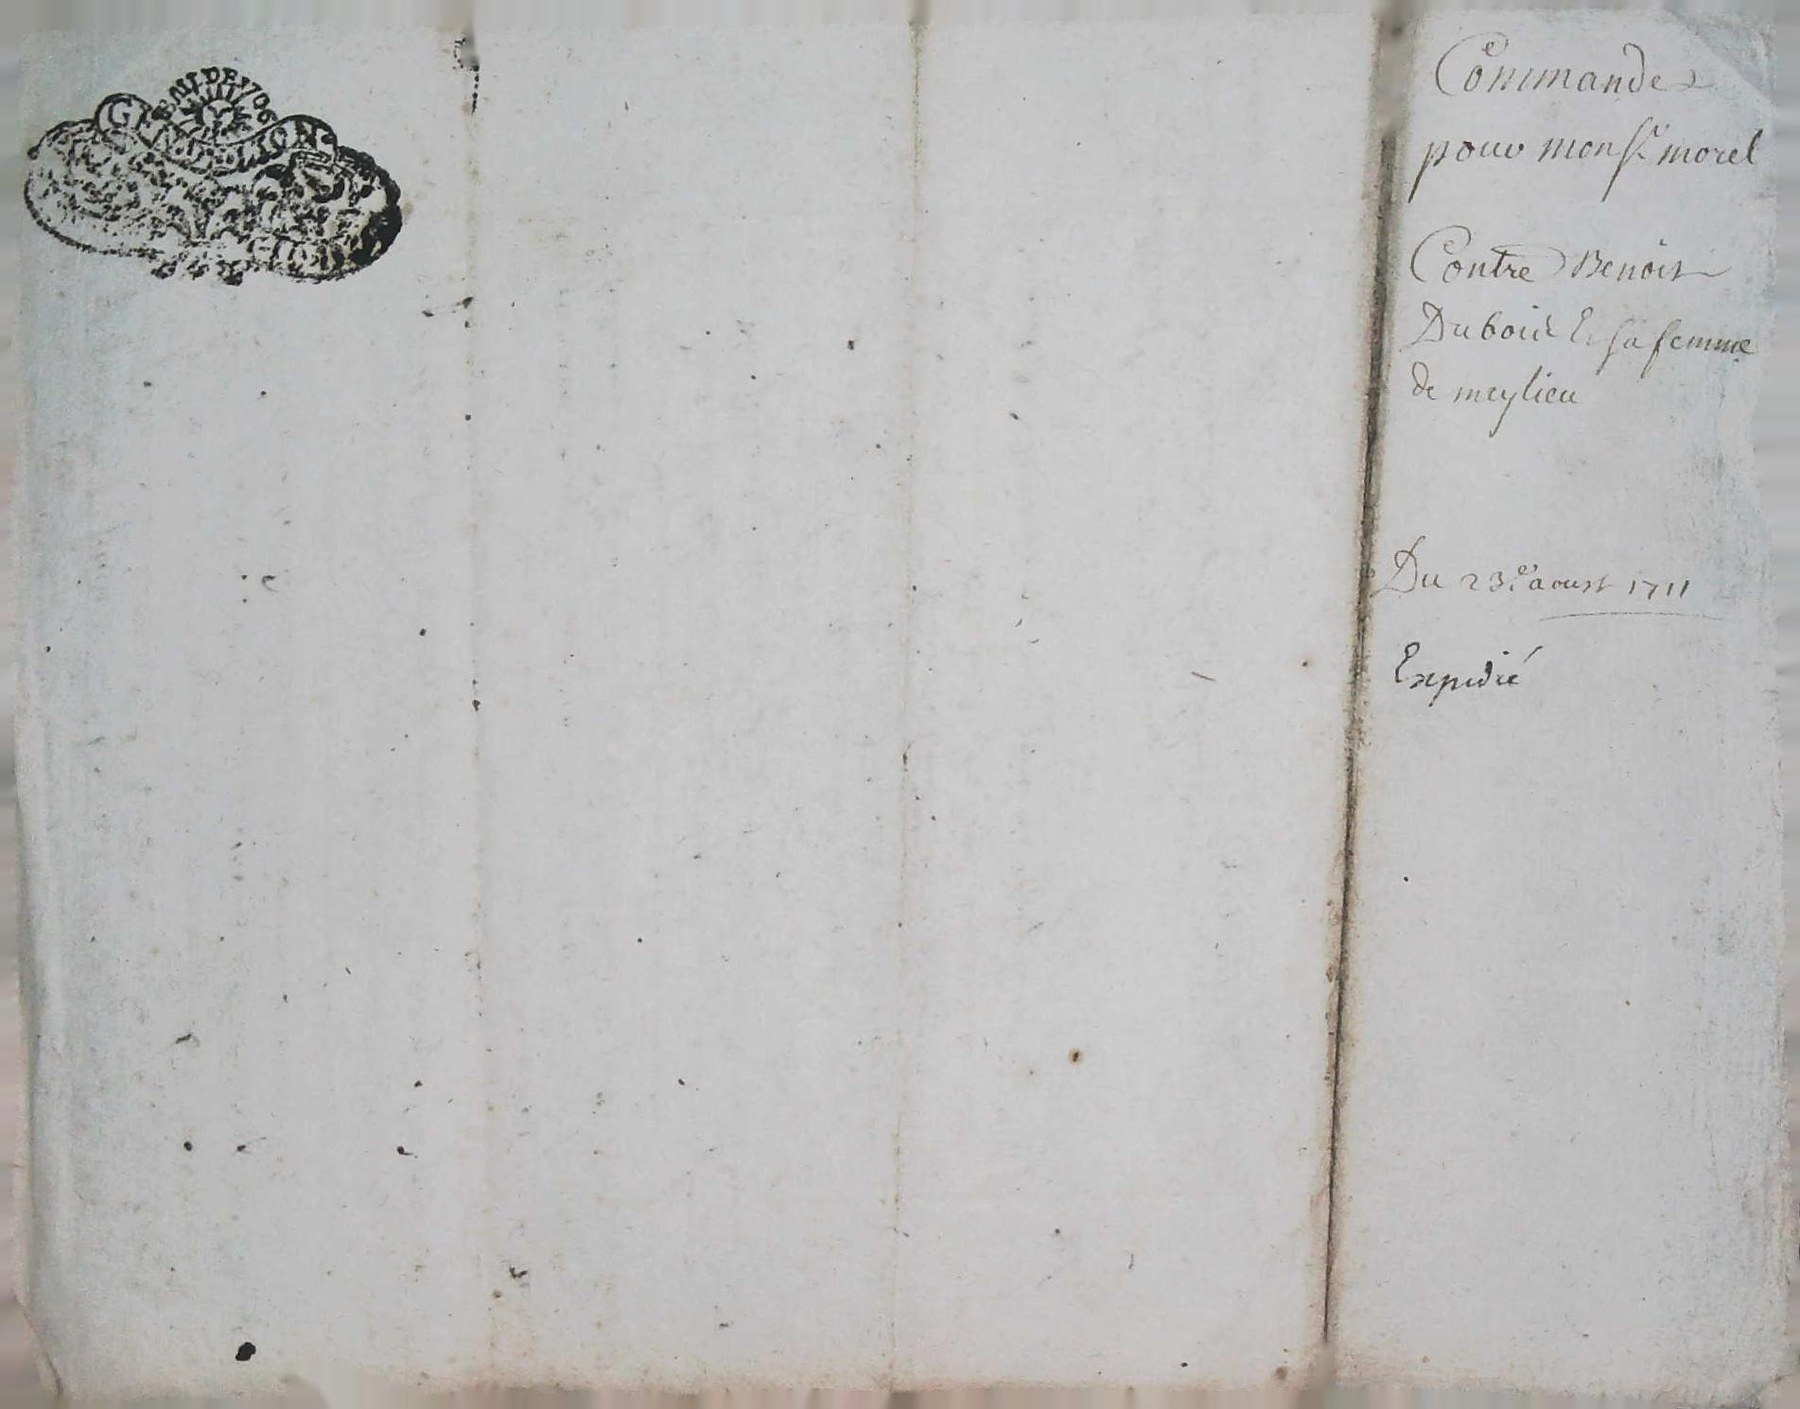 GEN. D. LION
Commande
pour mons.r morel
Contre Benoist
Dubois Et sa femme
de meylieu
Du 23.e aoust 1711
Expedié